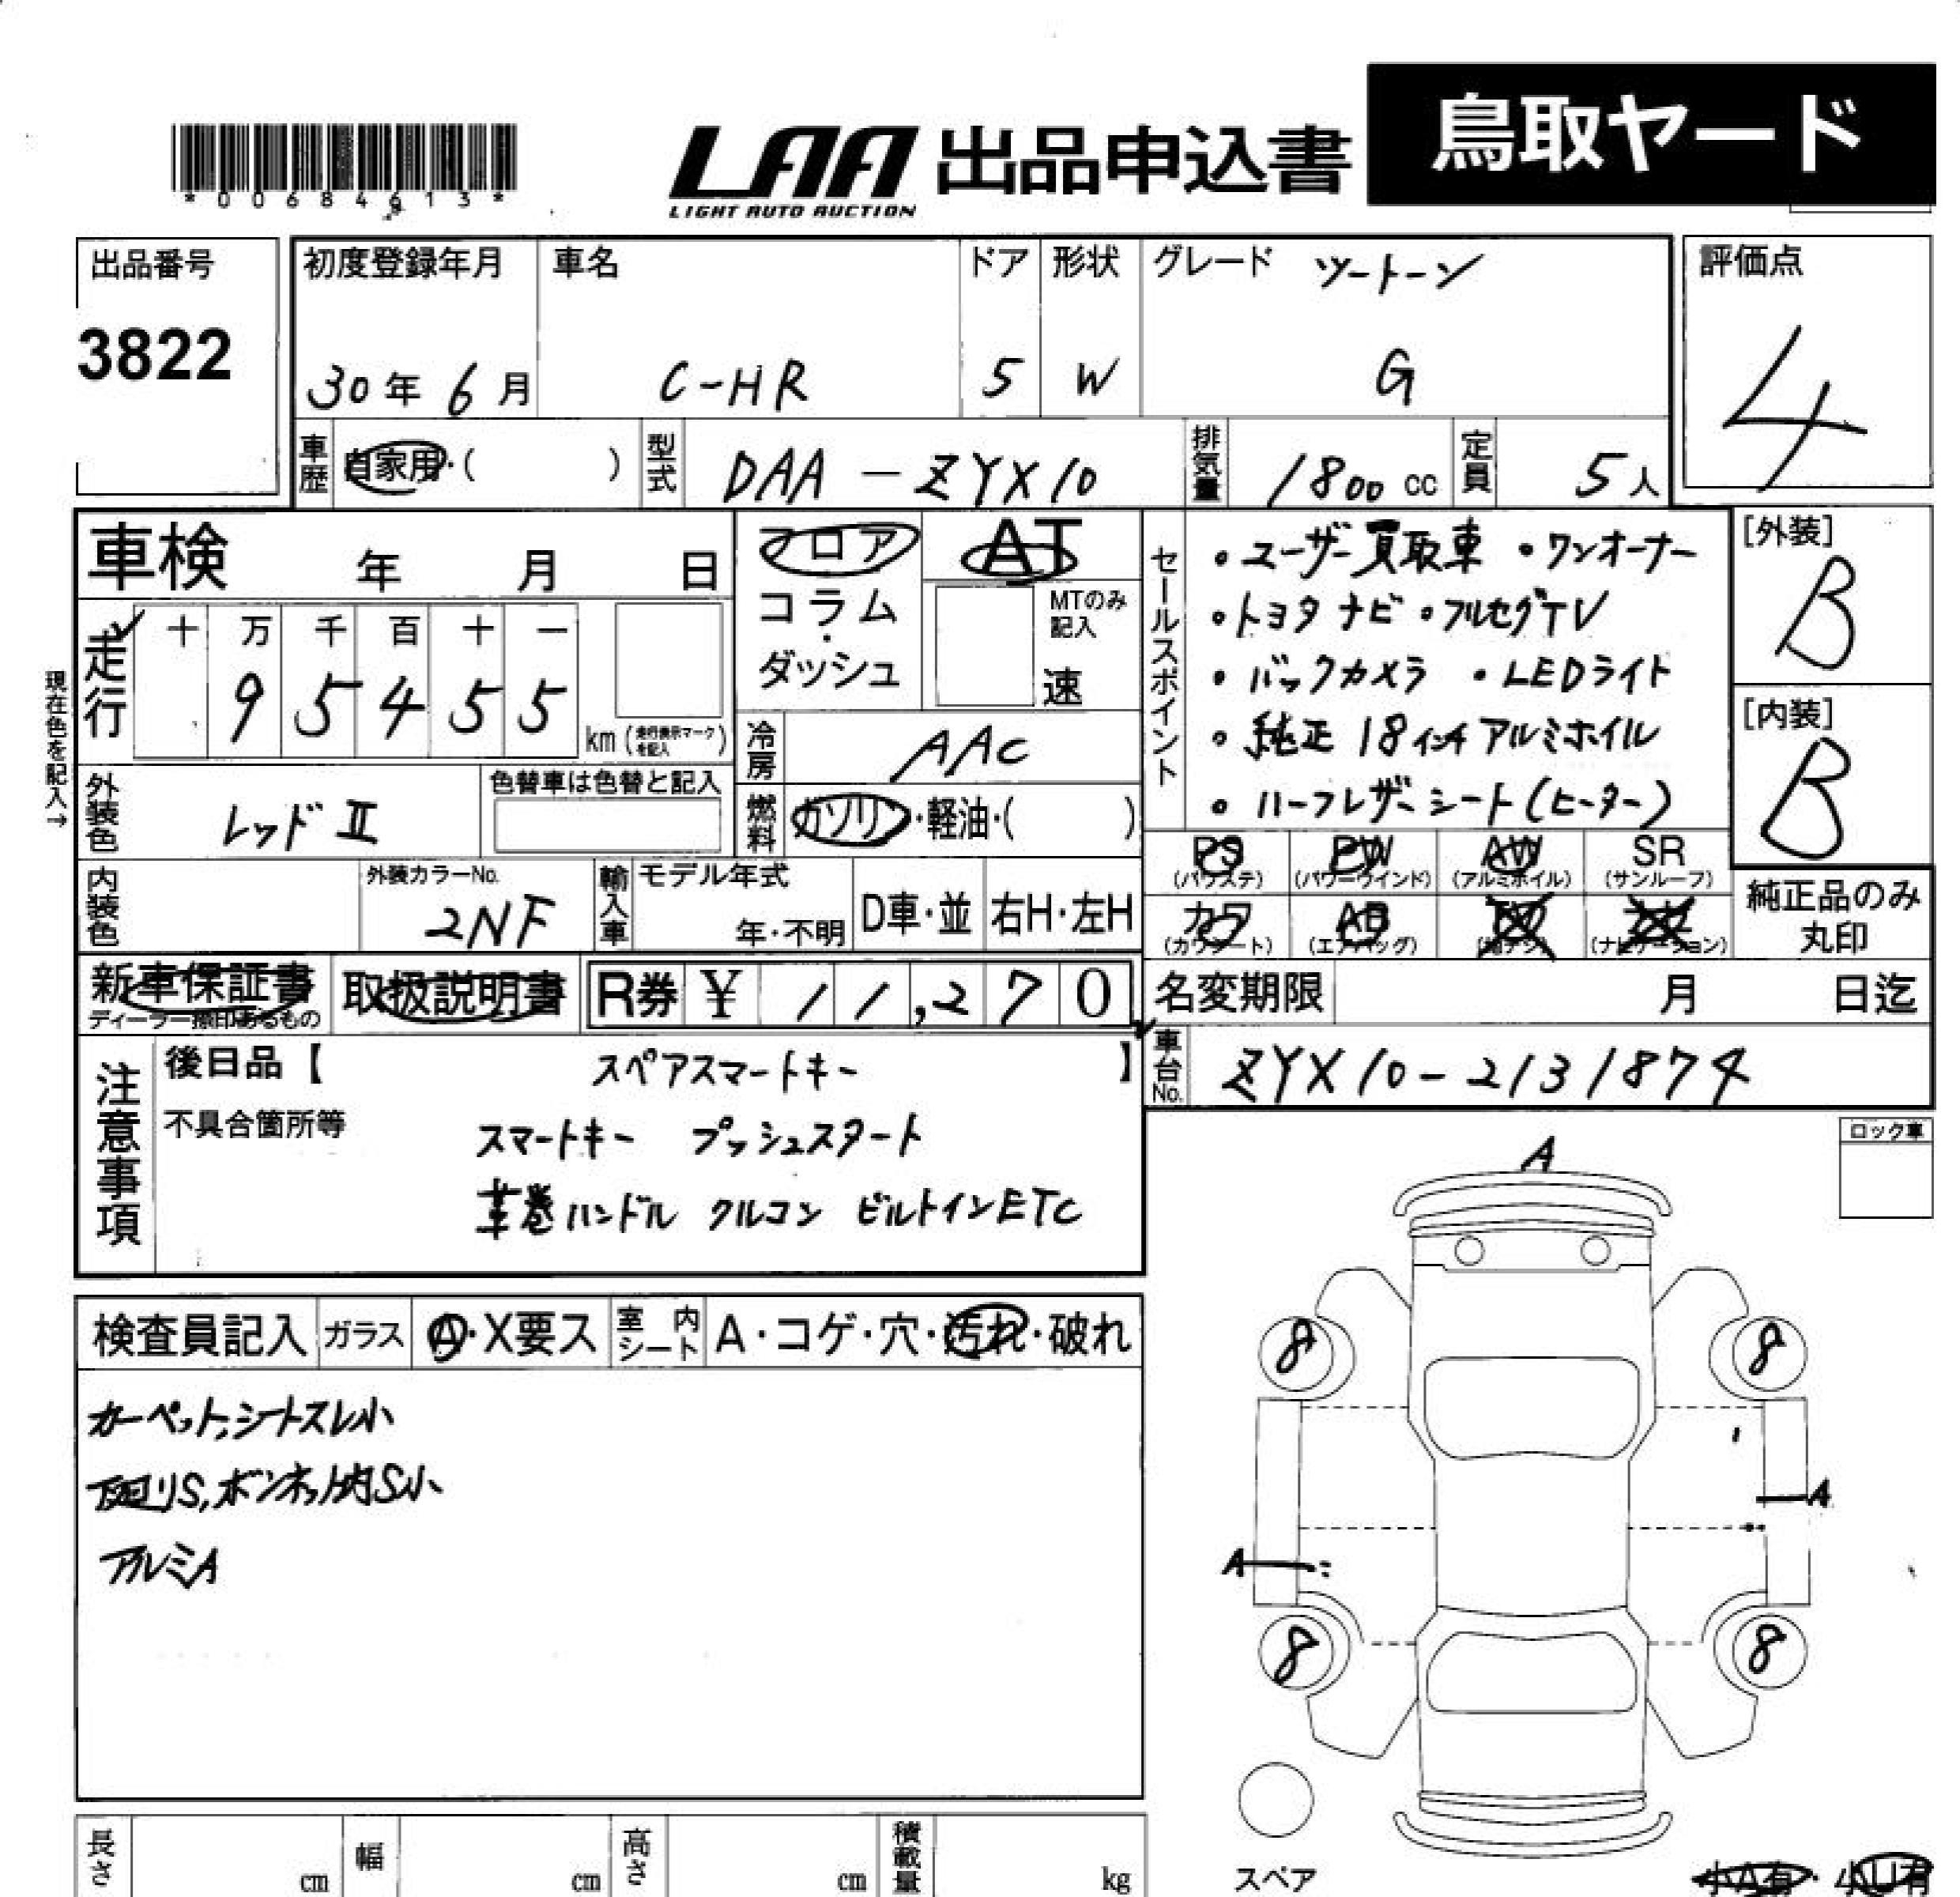 鳥取ヤード
LAA 出品申込書
LIGHT AUTO AUCTION
*00684613*
出品番号
3822
初度登録年月
30年 6月
車名
C-HR
ドア
5
形状
W
グレード ツートーン
G
評価点
4
車歴 自家用・( )
型式 DAA-ZYX10
排気量 1800 cc
定員 5人
車検 年 月 日
フロア
コラム・ダッシュ
AT
MTのみ記入
速
走行
十 万 千 百 十 一
9 5 4 5 5
km (走行表示マークを記入)
現在色を記入→
外装色 レッドⅡ
色替車は色替と記入
冷房 AAC
燃料 ガソリン・軽油・( )
セールスポイント
・ユーザー買取車 ・ワンオーナー
・トヨタナビ ・フルセグTV
・バックカメラ ・LEDライト
・純正18インチアルミホイル
・ハーフレザーシート(ヒーター)
[外装]
B
[内装]
B
PS (パワステ)
PW (パワーウインド)
AW (アルミホイル)
SR (サンルーフ)
カワ (カワシート)
AB (エアバッグ)
(ナビゲーション)
純正品のみ丸印
内装色
外装カラーNo.
2NF
輸入車
モデル年式
年・不明
D車・並
右H・左H
新車保証書
ディーラー捺印あるもの
取扱説明書
R券 ¥ 11,270
名変期限 月 日迄
車台No. ZYX10-2131874
注意事項
後日品【 スペアスマートキー 】
不具合箇所等
スマートキー プッシュスタート
革巻ハンドル クルコン ビルトインETC
ロック車
検査員記入
ガラス A・X要ス
室内シート A・コゲ・穴・汚れ・破れ
カーペット,シートスレ小
下廻りS,ボンネット内S小
アルミA
A
8 8
A
A
8 8
スペア
小A有・小U有
長さ cm
幅 cm
高さ cm
積載量 kg